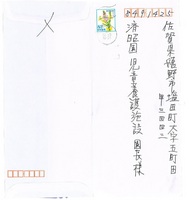 849-1425
佐賀県嬉野市塩田町大字五町田
甲三四四三
済昭園 児童養護施設 園長様